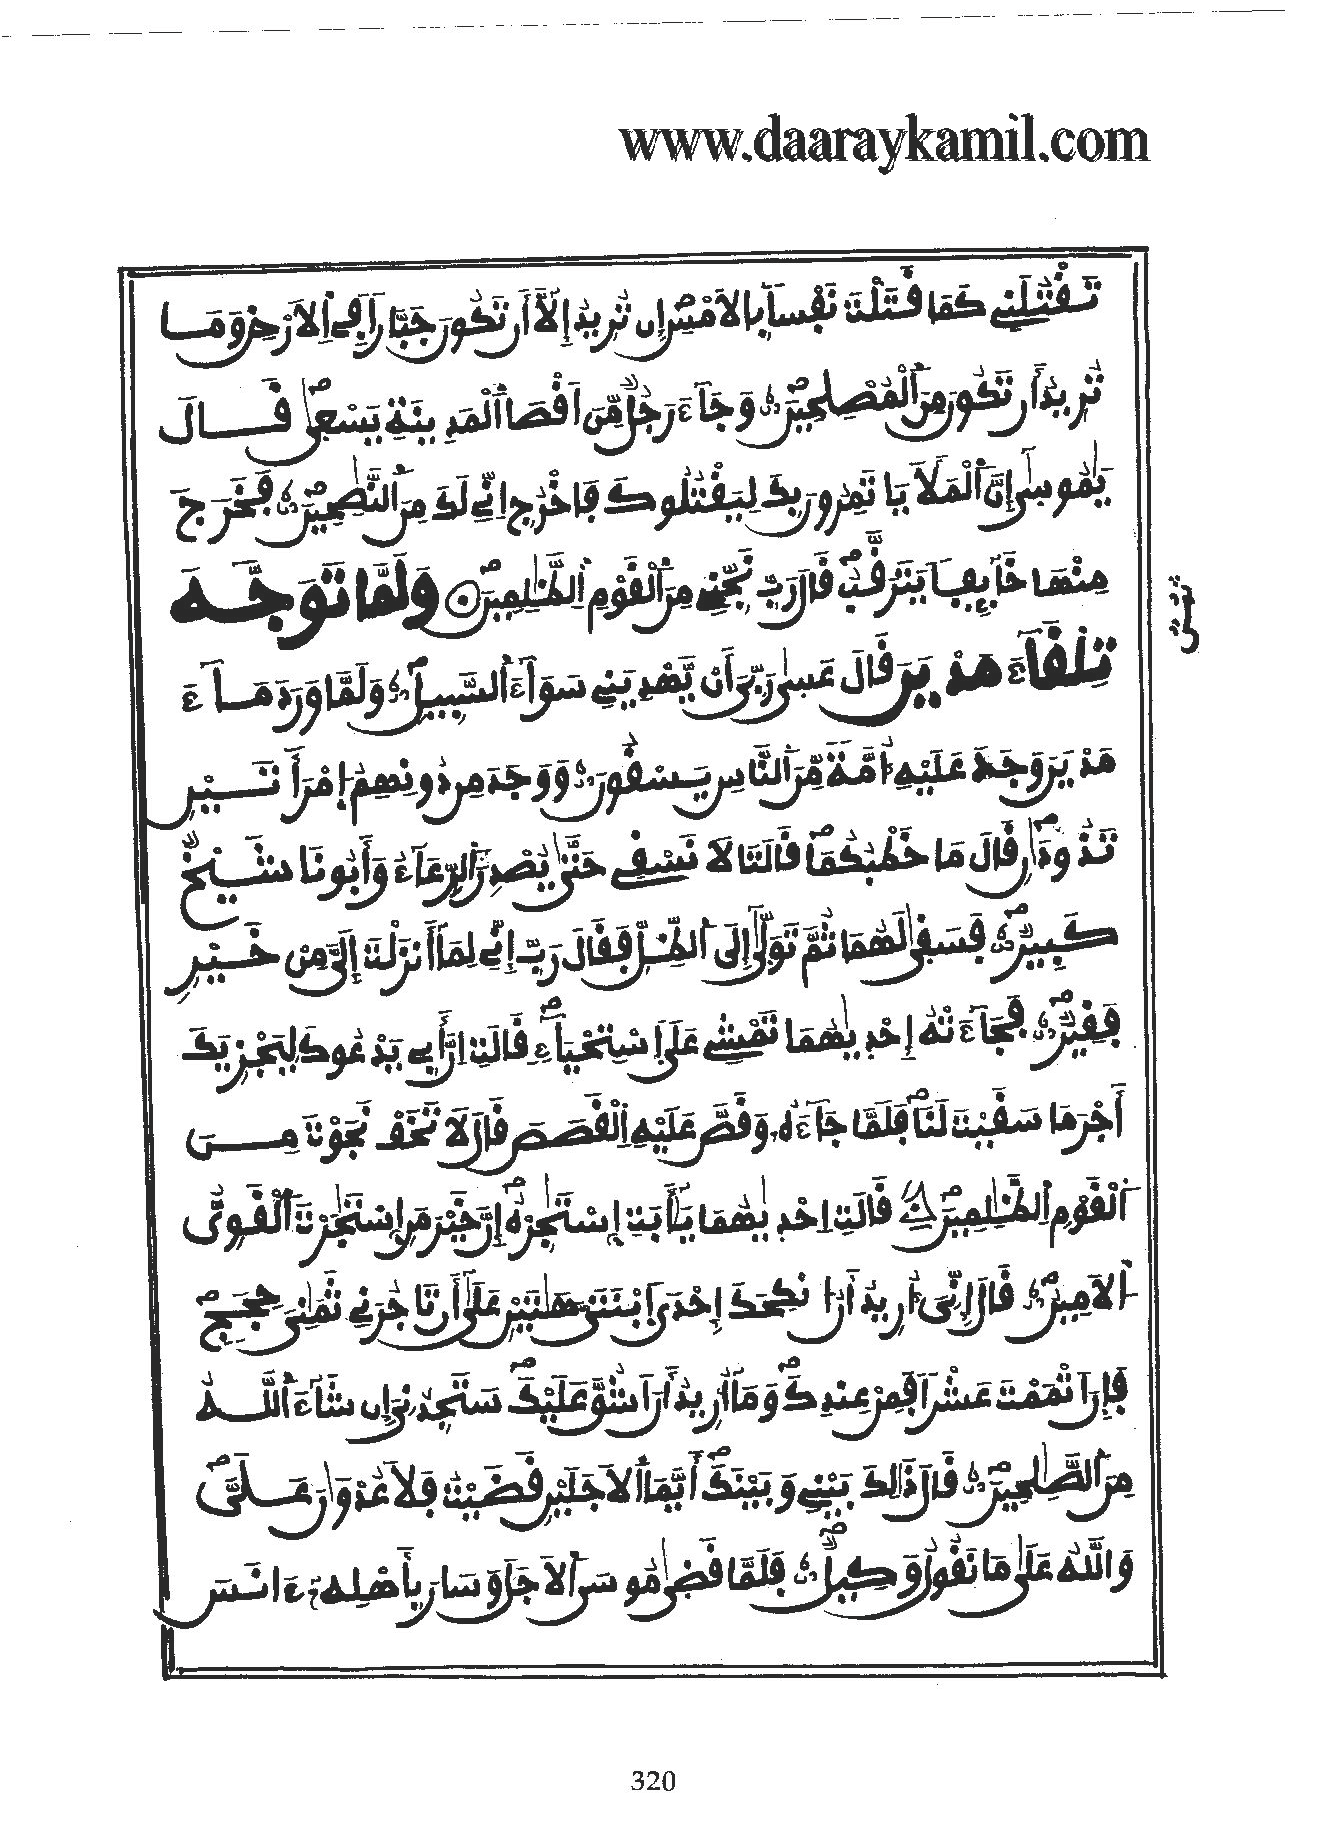 www.daaraykamil.com
تَقْتُلَنِے كَمَا قَتَلْتَ نَفْساً بِالَامْسِ إِن تُرِيدُ إِلَّا أَن تَكُونَ جَبَّاراً فِے اِلَارْضِ وَمَا
تُرِيدُ أَن تَكُونَ مِنَ اَلْمُصْلِحِينَ وَجَآءَ رَجُلٌ مِّنَ اَقْصَا اَلْمَدِينَةِ يَسْعىٰ قَالَ
يَٰمُوسىٰ إِنَّ اَلْمَلَأَ يَاتَمِرُونَ بِكَ لِيَقْتُلُوكَ فَاخْرُجِ اِنِّے لَكَ مِنَ اَلنَّٰصِحِينَ فَخَرَجَ
مِنْهَا خَآئِفاً يَتَرَقَّبُ قَالَ رَبِّ نَجِّنِے مِنَ اَلْقَوْمِ اِلظَّٰلِمِينَ وَلَمَّا تَوَجَّهَ
تِلْقَآءَ مَدْيَنَ قَالَ عَسىٰ رَبِّىَ أَنْ يَّهْدِيَنِے سَوَآءَ اَلسَّبِيلِ وَلَمَّا وَرَدَ مَآءَ
مَدْيَنَ وَجَدَ عَلَيْهِ أُمَّةً مِّنَ اَلنَّاسِ يَسْقُونَ وَوَجَدَ مِن دُونِهِمُ إِمْرَأَتَيْنِ
تَذُودَانِ قَالَ مَا خَطْبُكُمَا قَالَتَا لَا نَسْقِے حَتّىٰ يُصْدِرَ اَلرِّعَآءُ وَأَبُونَا شَيْخٌ
كَبِيرٌ فَسَقىٰ لَهُمَا ثُمَّ تَوَلّىٰ إِلَى اَلظِّلِّ فَقَالَ رَبِّ إِنِّے لِمَا أَنزَلْتَ إِلَىَّ مِنْ خَيْرٍ
فَقِيرٌ فَجَآءَتْهُ إِحْدِيٰهُمَا تَمْشِے عَلَى اَسْتِحْيَآءٍ قَالَتِ انَّ أَبِے يَدْعُوكَ لِيَجْزِيَكَ
أَجْرَ مَا سَقَيْتَ لَنَا فَلَمَّا جَآءَهُۥ وَقَصَّ عَلَيْهِ اِلْقَصَصَ قَالَ لَا تَخَفْ نَجَوْتَ مِنَ
اَلْقَوْمِ اِلظَّٰلِمِينَ قَالَتِ اِحْدِيٰهُمَا يَٰأَبَتِ إِسْتَٰجِرْهُ إِنَّ خَيْرَ مَنِ إِسْتَٰجَرْتَ اَلْقَوِىُّ
اَلَامِينُ قَالَ إِنِّىَ أُرِيدُ أَنُ انكِحَكَ إِحْدَى اَبْنَتَىَّ هَٰتَيْنِ عَلىٰ أَن تَاجُرَنِے ثَمَٰنِىَ حِجَجٍ
فَإِنَ اَتْمَمْتَ عَشْراً فَمِنْ عِندِكَ وَمَا أُرِيدُ أَنَ اَشُقَّ عَلَيْكَ سَتَجِدُنِىَ إِن شَآءَ اَللَّهُ
مِنَ اَلصَّٰلِحِينَ قَالَ ذَٰلِكَ بَيْنِے وَبَيْنَكَ أَيَّمَا اَلَاجَلَيْنِ قَضَيْتُ فَلَا عُدْوَٰنَ عَلَىَّ
وَاللَّهُ عَلىٰ مَا نَقُولُ وَكِيلٌ فَلَمَّا قَضىٰ مُوسَى اَلَاجَلَ وَسَارَ بِأَهْلِهِۦ ءَانَسَ
ثمن
320